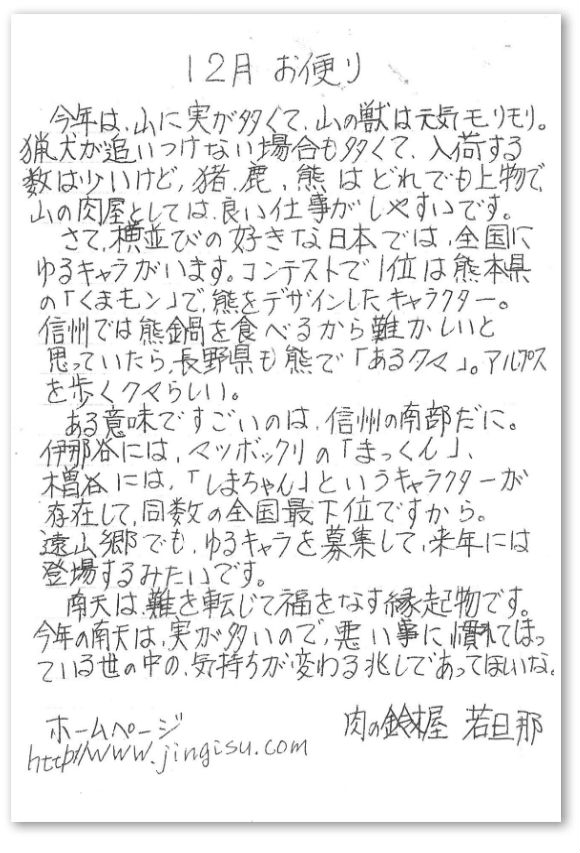 12月 お便り
今年は、山に実が多くて、山の獣は元気モリモリ。
猟犬が追いつけない場合も多くて、入荷する
数は少いけど、猪、鹿、熊はどれでも上物で、
山の肉屋としては、良い仕事がしやすいです。
さて、横並びの好きな日本では、全国に
ゆるキャラがいます。コンテストで1位は熊本県
の「くまモン」で、熊をデザインしたキャラクター。
信州では熊鍋を食べるから難かしいと
思っていたら、長野県も熊で「あるクマ」。アルプス
を歩くクマらしい。
ある意味ですごいのは、信州の南部だに。
伊那谷には、マツボックリの「まっくん」、
木曽谷には、「しまちゃん」というキャラクターが
存在して、同数の全国最下位ですから。
遠山郷でも、ゆるキャラを募集して、来年には
登場するみたいです。
南天は、難を転じて福をなす縁起物です。
今年の南天は、実が多いので、悪い事に慣れてしまっ
ている世の中の、気持ちが変わる兆しであってほしいな。
肉の鈴木屋 若旦那
ホームページ
http://www.jingisu.com